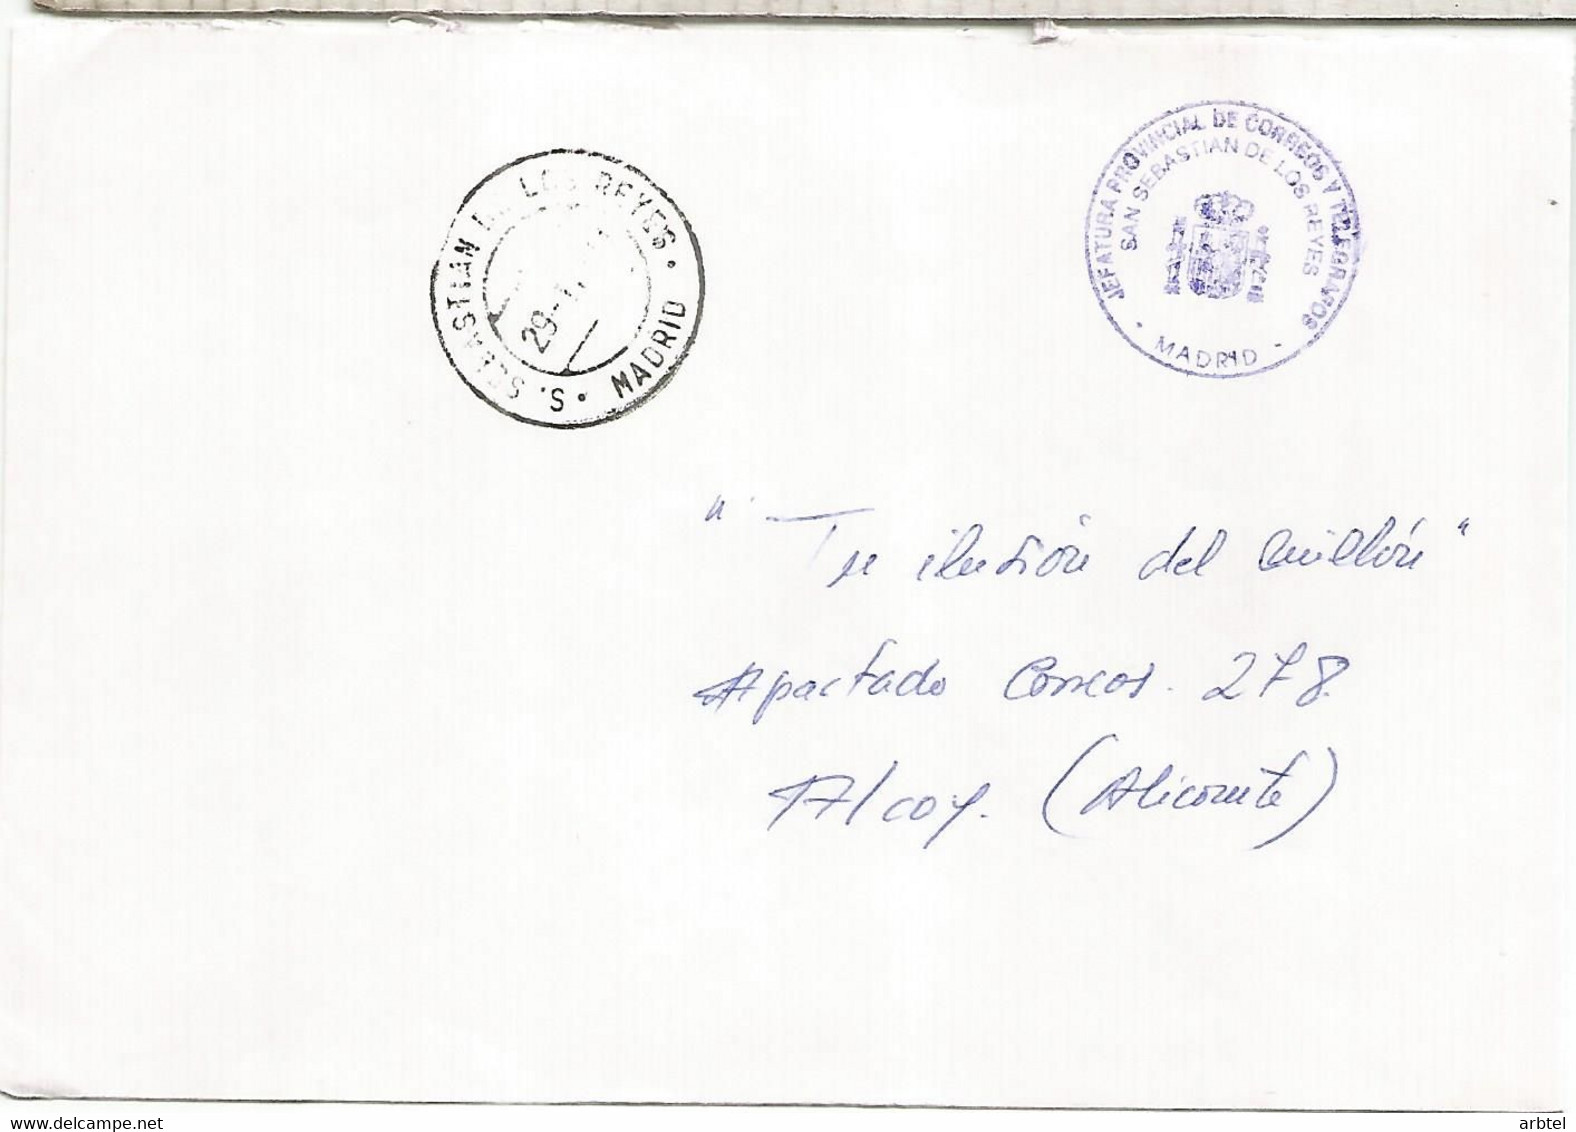 JEFATURA PROVINCIAL DE CORREOS Y TELEGRAFOS
SAN SEBASTIAN DE LOS REYES
- MADRID -
S. SEBASTIAN LOS REYES · MADRID ·
29-
" Tu ilusión del millón "
Apartado Correos. 278
Alcoy. (Alicante)
www.delcampe.net
arbtel